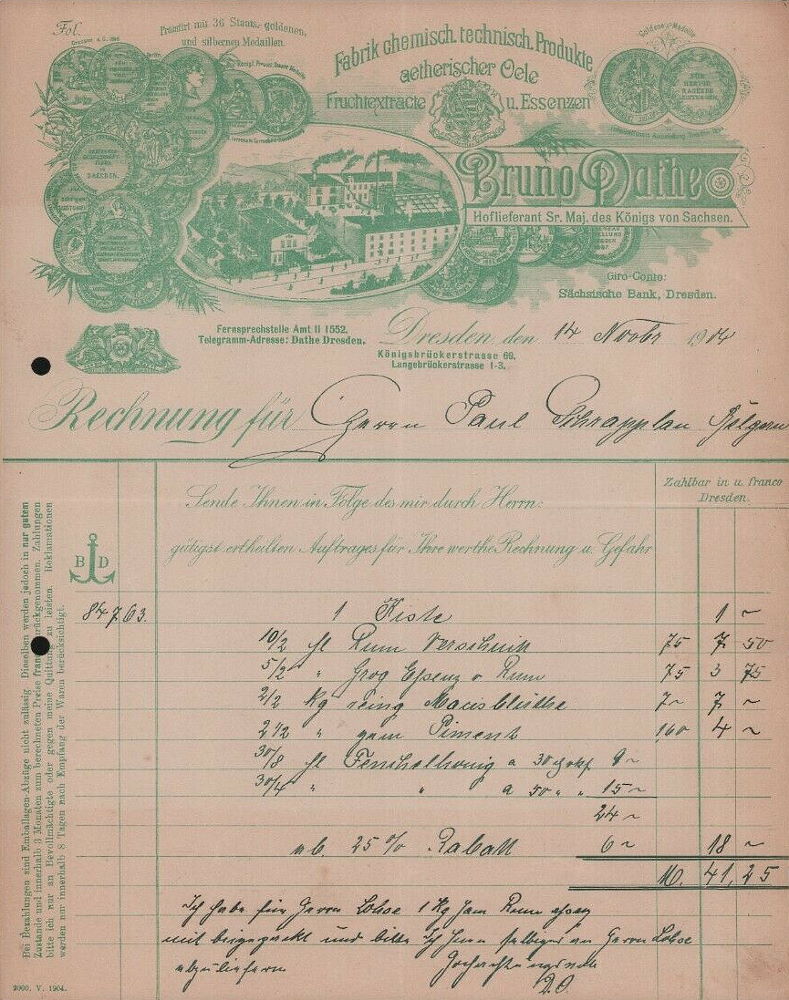 Fol.
Prämiirt mit 36 Staats-, goldenen,
und silbernen Medaillen.
Fabrik chemisch. technisch. Produkte
aetherischer Oele
Fruchtextracte u. Essenzen
Goldene Medaille
Bruno Dathe
Hoflieferant Sr. Maj. des Königs von Sachsen.
Giro-Conto:
Sächsische Bank, Dresden.
Fernsprechstelle Amt II 1552.
Telegramm-Adresse: Dathe Dresden.
Dresden, den 14 Novbr 1904
Königsbrückerstrasse 69.
Langebrückerstrasse 1-3.
Rechnung für Herrn Paul Schrapplau Belgern
Zahlbar in u. franco
Dresden.
Sende Ihnen in Folge des mir durch Herrn:
gütigst ertheilten Auftrages für Ihre werthe Rechnung u. Gefahr
B D
Bei Bezahlungen sind Emballagen-Abzüge nicht zulässig. Dieselben werden jedoch in nur gutem
Zustande und innerhalb 3 Monaten zum berechneten Preise franco zurückgenommen. Zahlungen
bitte ich nur an Bevollmächtigte oder gegen meine Quittung zu leisten. Reklamationen
werden nur innerhalb 8 Tagen nach Empfang der Waren berücksichtigt.
84763. 1 Kiste 1 ~
10/2 fl Rum Verschnitt 75 7 50
5/2 " Grog Essenz v. Rum 75 3 75
2/2 Kg Macisblüthe 7 ~ 7 ~
2 1/2 " gem Piment 160 4 ~
30/8 fl Fenchelhonig a 30 9 ~
30/4 " " a 50 " " 15 ~
24 ~
ab. 25 % Rabatt 6 ~ 18 ~
M. 41,25
Ich habe für Herrn Lohse 1 Kg Jam Rum
mit beigepackt und bitte Ich Ihnen selbiges an Herrn Lohse
abzuliefern Hochachtungsvoll
B.D.
2000. V. 1904.